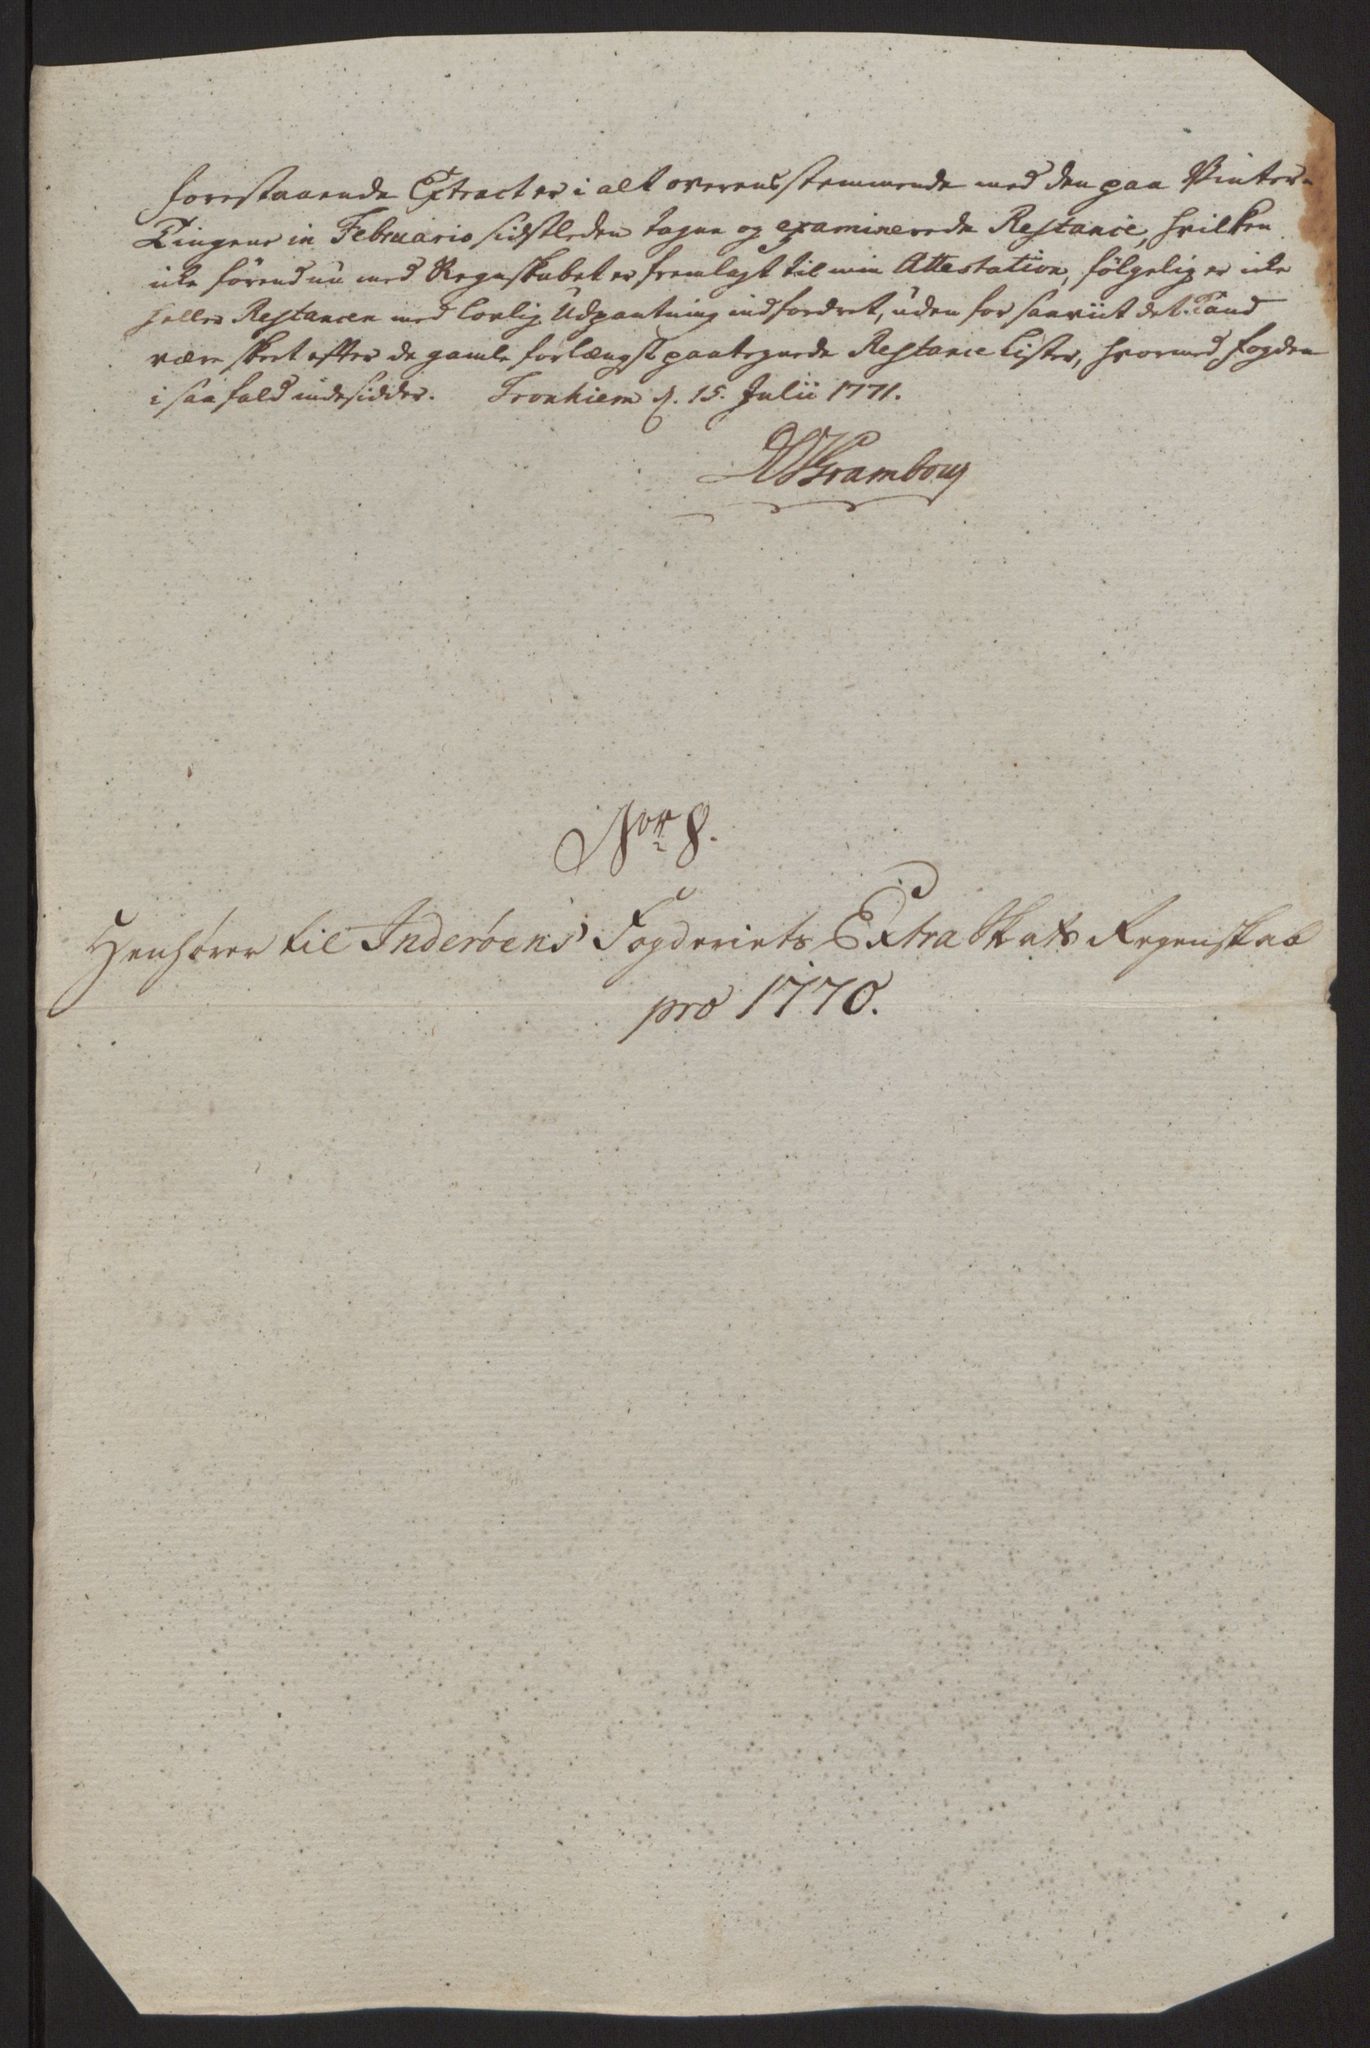 Forestaaende Extract er i alt overensstemmende med den paa Vinter-
Tingene in Februario sidstleden tagne og examinerede Restance, hvilken
icke förend nu med Regnskabet er fremlagt til min Attestation, fölgelig er icke
heller Restancen med Lovlig Udpantning indfordret, uden for saaviit det kand
være skeet efter de gamle forlængst paategnede Restance Lister, hvormed Fogden
i saa fald indesidder. Tronhiem d. 15. Julii 1771.
Krambou
No. 8.
Henhører til Inderöens Fogderiets Extra Skats Regenskab
pro 1770.